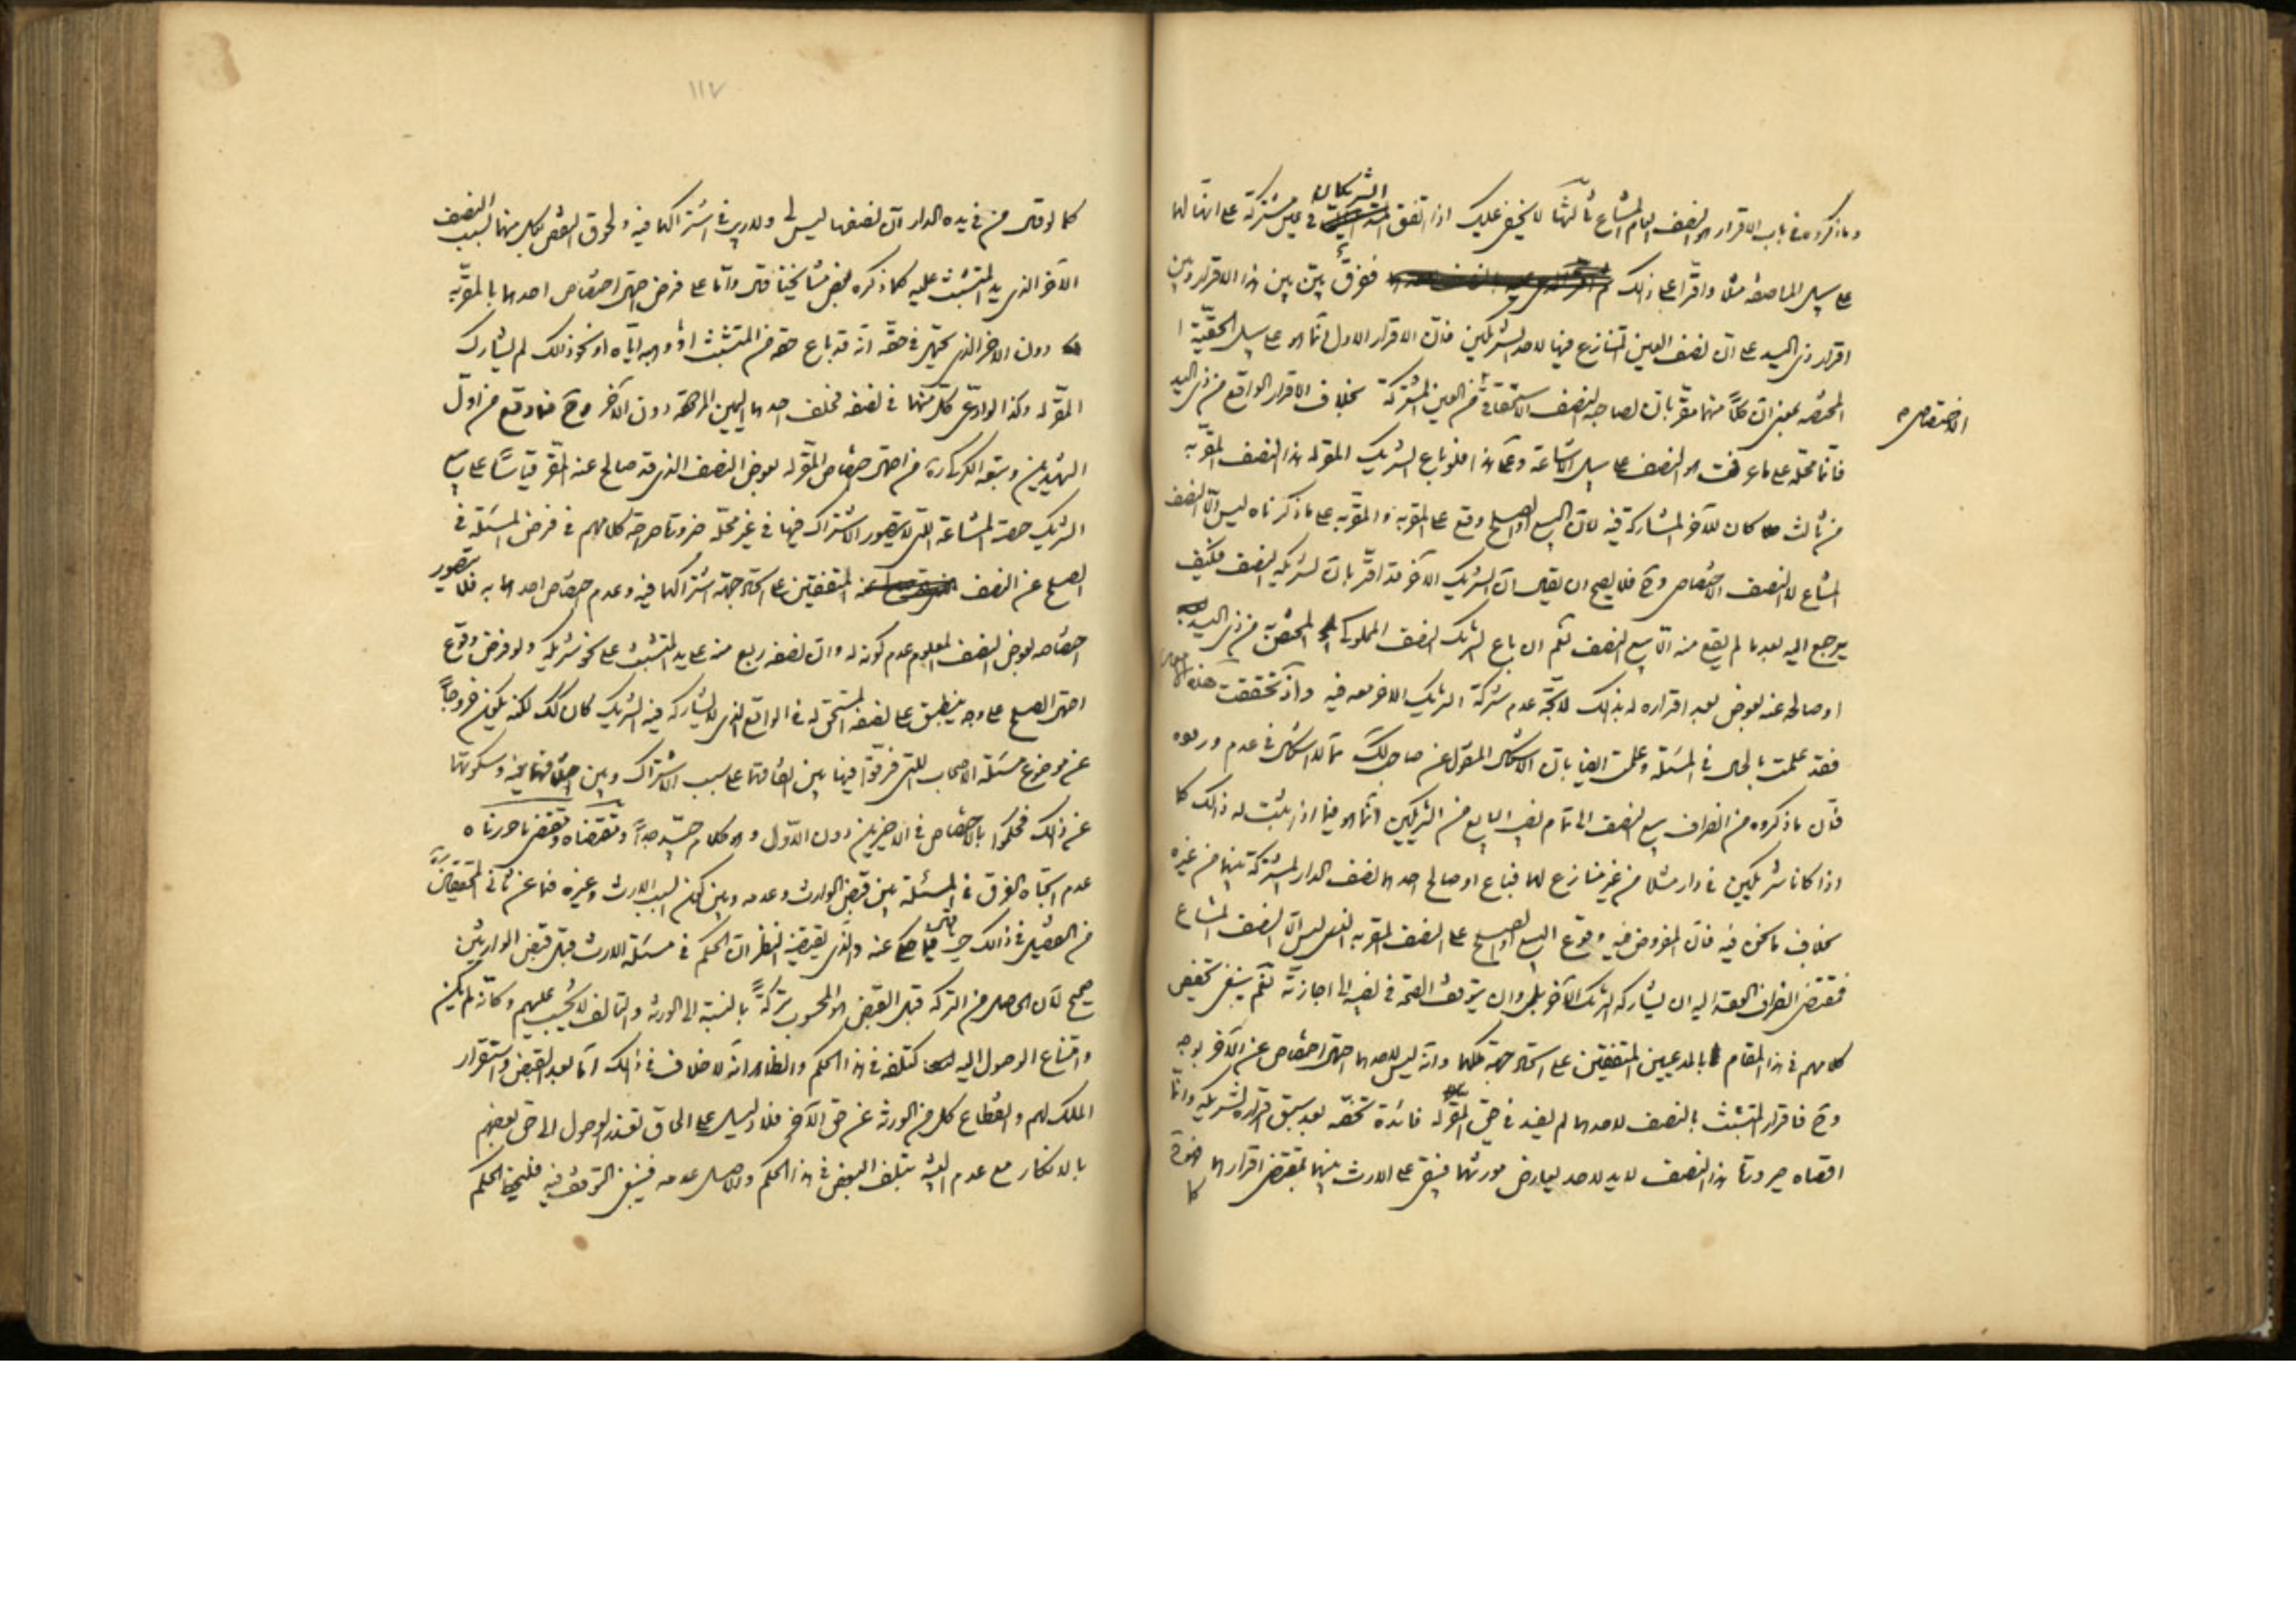 وما ذكروه في باب الاقرار هو النصف التام المشاع ثالثها لا يخفى عليك اذا اتفق الشريكان في عين مشتركة على انها لهما
على سبيل المناصفة مثلا واقرا على ذلك فرق بيّن بين هذا الاقرار وبين
اقرار ذي اليد على ان نصف العين المتنازع فيها لاحد الشريكين فان الاقرار الاول انما هو على سبيل الحقيّة
المختصة بمعنى ان كلاً منهما مقر بان لصاحبه النصف الاستحقاقي من العين المشتركة بخلاف الاقرار الواقع من ذي اليد
الاختصاص
فانما محله على ما عرفت هو النصف على سبيل الاشاعة وعلى هذا فلو باع الشريك المقر له هذا النصف المقر به
من ثالث كان للآخر المشاركة فيه لان البيع او الصلح وقع على المقر به والمقر به على ما ذكرناه ليس الا النصف
المشاع لا النصف الاختصاصي وح فلا يصح ان يقال ان الشريك الآخر قد اقر بان لشريكه النصف فكيف
يرجع اليه بعد ما لم يقع منه الا بيع النصف نعم ان باع الشريك النصف المملوك المختص من ذي اليد
او صالحه عنه بعوض بعد اقراره له بذلك لاتجه عدم شركة الشريك الاخر معه فيه واذ تحققت هذه
فقد علمت بالحال في المسئلة وعلمت ايضا بان الاشكال المنقول عن صاحب لك مما لا اشكال في عدم وروده
فان ما ذكروه من انصراف بيع النصف الى تمام نصيب البايع من الشريكين انما هو فيما اذا ثبت له ذلك كما
اذا كانا شريكين في دار مثلا من غير منازع لهما فباع او صالح احدهما نصف الدار المشتركة بينهما من غيره
بخلاف ما نحن فيه فان المفروض فيه وقوع البيع او الصلح على النصف المقر به الذي ليس الا النصف المشاع
فمقتضى انصراف العقد اليه ان يشاركه الشريك الآخر بل وان يتوقف الصحة في نصيبه الى اجازته نعم ينبغي تخصيص
كلامهم في هذا المقام بالمدعيين المتفقين على اتحاد جهة ملكهما وانه ليس لاحدهما احتمال اختصاص عن الآخر بوجه
وح فاقرار المتشبث بالنصف لاحدهما لم يفد في حق المقر له فائدة تخصه بعد سبق اقراره لشريكه وانما
اقصاه صيرورة هذا النصف لا يد لاحد يعارض مورثهما فيبقى على الارث بينهما بمقتضى اقرارهما ضرورة
كما
١١٧
كما لو قال من في يده الدار ان نصفها ليس لي ولا ريب في اشتراكهما فيه ولحوق النقص بكل منهما بسبب النصف
الآخر الذي يد المتشبث عليه كما ذكره بعض مشايخنا قال واما على فرض احتمال اختصاص احدهما بالمقر به
دون الاخر الذي يحتمل في حقه انه قد باع حقه من المتشبث او وهبه اياه او نحو ذلك لم يشارك
المقر له وكذا لو ادعى كل منهما في نصفه فحلف احدهما اليمين المردودة دون الآخر وح فما وقع من اول
الشهيدين وتبعه الكركي من احتمال اختصاص المقر له بعوض النصف الذي قد صالح عنه المقر قياسًا على بيع
الشريك حصته المشاعة التي لا يتصور الاشتراك فيها في غير محله ضرورة صراحة كلامهم في فرض المسئلة في
الصلح عن النصف عنه المتفقين على اتحاد جهة اشتراكهما فيه وعدم اختصاص احدهما به فلا يتصور
اختصاصه بعوض النصف المعلوم عدم كونه له وان نصفه ربع منه على يد المتشبث على نحو شريكه ولو فرض وقوع
احتمال الصلح على وجه ينطبق على نصفه المستحق له في الواقع الذي لا يشاركه فيه الشريك كان كذلك لكنه يكون خروجاً
عن موضوع مسئلة الاصحاب التي فرقوا فيها بين اتفاقهما على سبب الاشتراك وبين اختلافهما فيه وسكوتهما
عن ذلك فحكموا بالاختصاص في الاخيرين دون الاول وهو كلام جيّد جداً ومقتضاه ومقتضى ما حررناه
عدم اتجاه الفرق في المسئلة بين قبض الوارث وعدمه وبين كون السبب الارث وغيره فما عن ثاني المحققين
من التفصيل في ذلك حيث قال فيما حكي عنه والذي يقتضيه النظر ان الحكم في مسئلة الارث قبل قبض الوارثين
صحيح لان الحاصل من التركة قبل القبض هو المحسوب تركةً بالنسبة الى الورثة والتالف لا يحسب عليهم وكانه لم يكن
وامتناع الوصول اليه كتلفه في هذا الحكم والظاهر انه لا خلاف في ذلك اما بعد القبض واستقرار
الملك لهم وانقطاع كل من الورثة عن حق الآخر فلا دليل على الحاق تعذر الوصول الى حق بعضهم
بالانكار مع عدم البينة بتلف البعض في هذا الحكم والاصل عدمه فينبغي التوقف فيه فليحفظ الحكم